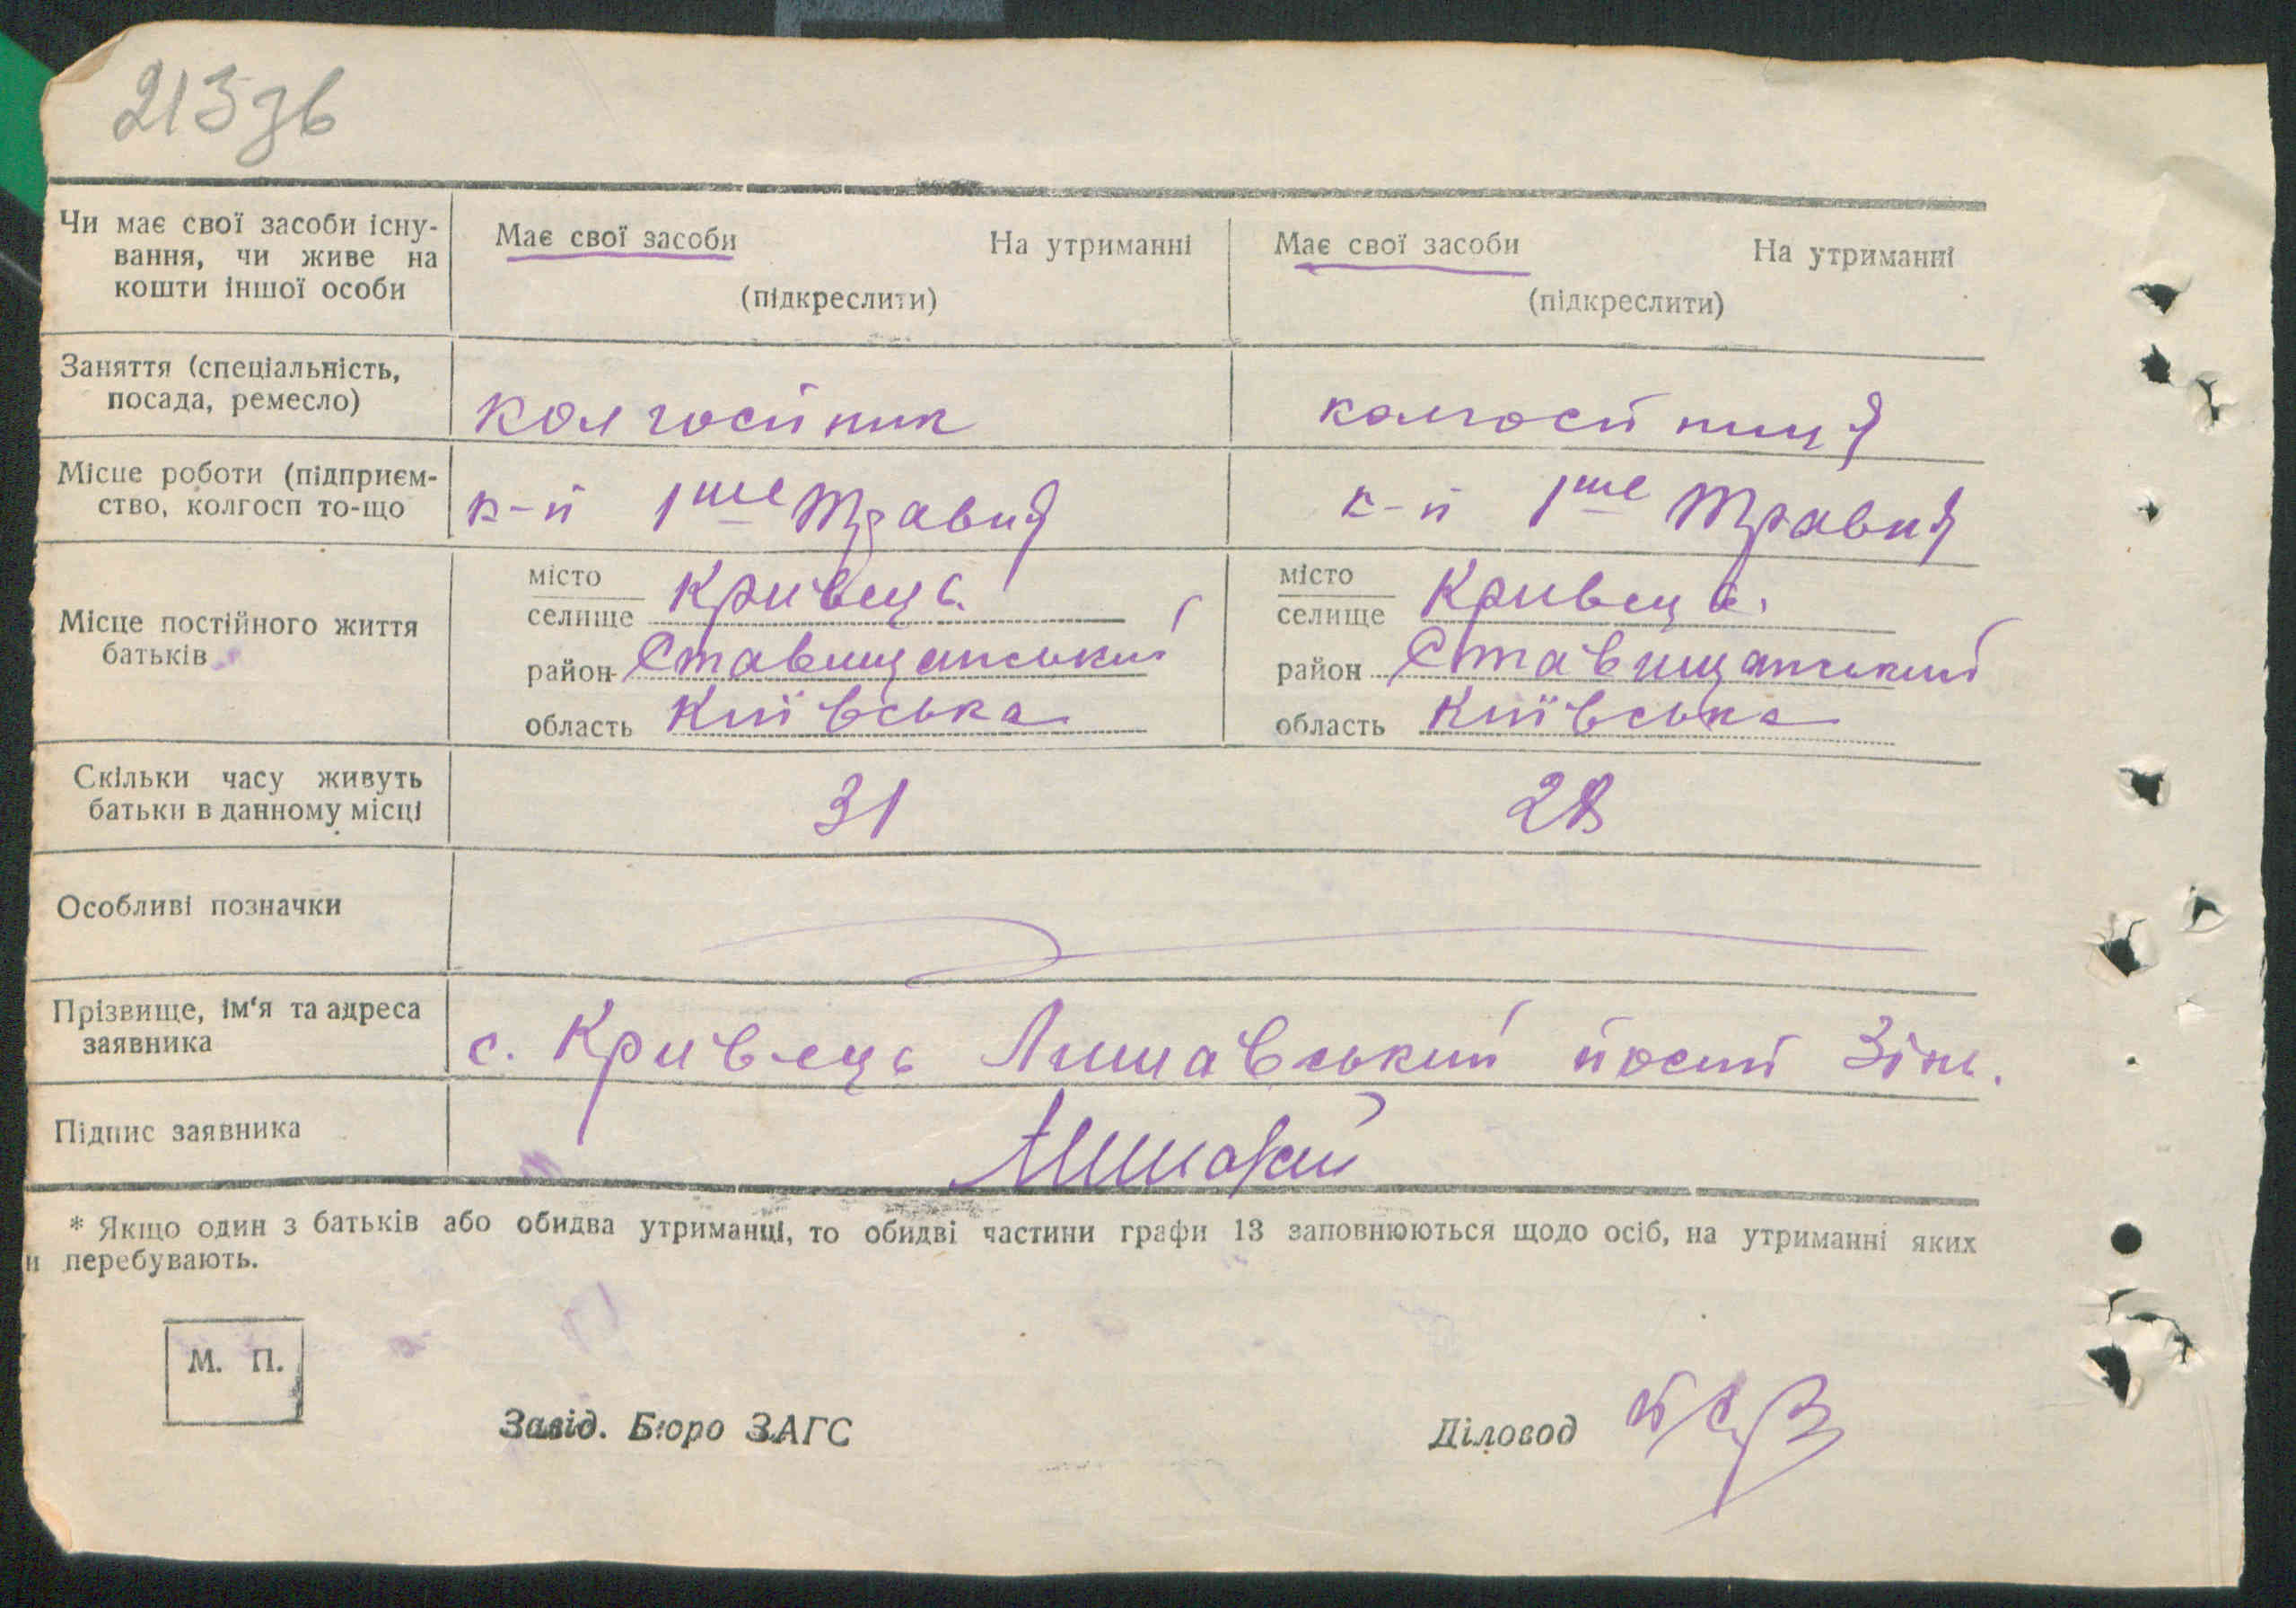 213зв
Чи має свої засоби існу-
вання, чи живе на
кошти іншої особи
Має свої засоби На утриманні
(підкреслити)
Має свої засоби На утриманні
(підкреслити)
Заняття (спеціальність,
посада, ремесло)
колгоспник
колгоспниця
Місце роботи (підприєм-
ство, колгосп то-що
к-п 1ше Травня
к-п 1ше Травня
Місце постійного життя
батьків
місто
селище Кривець
район Ставищанський
область Київська
місто
селище Кривець
район Ставищанський
область Київська
Скільки часу живуть
батьки в данному місці
31
28
Особливі позначки
Прізвище, ім'я та адреса
заявника
с. Кривець Лишавський Йосип Зінь.
Підпис заявника
* Якщо один з батьків або обидва утриманці, то обидві частини графи 13 заповнюються щодо осіб, на утриманні яких
и перебувають.
М. П.
Завід. Бюро ЗАГС
Діловод